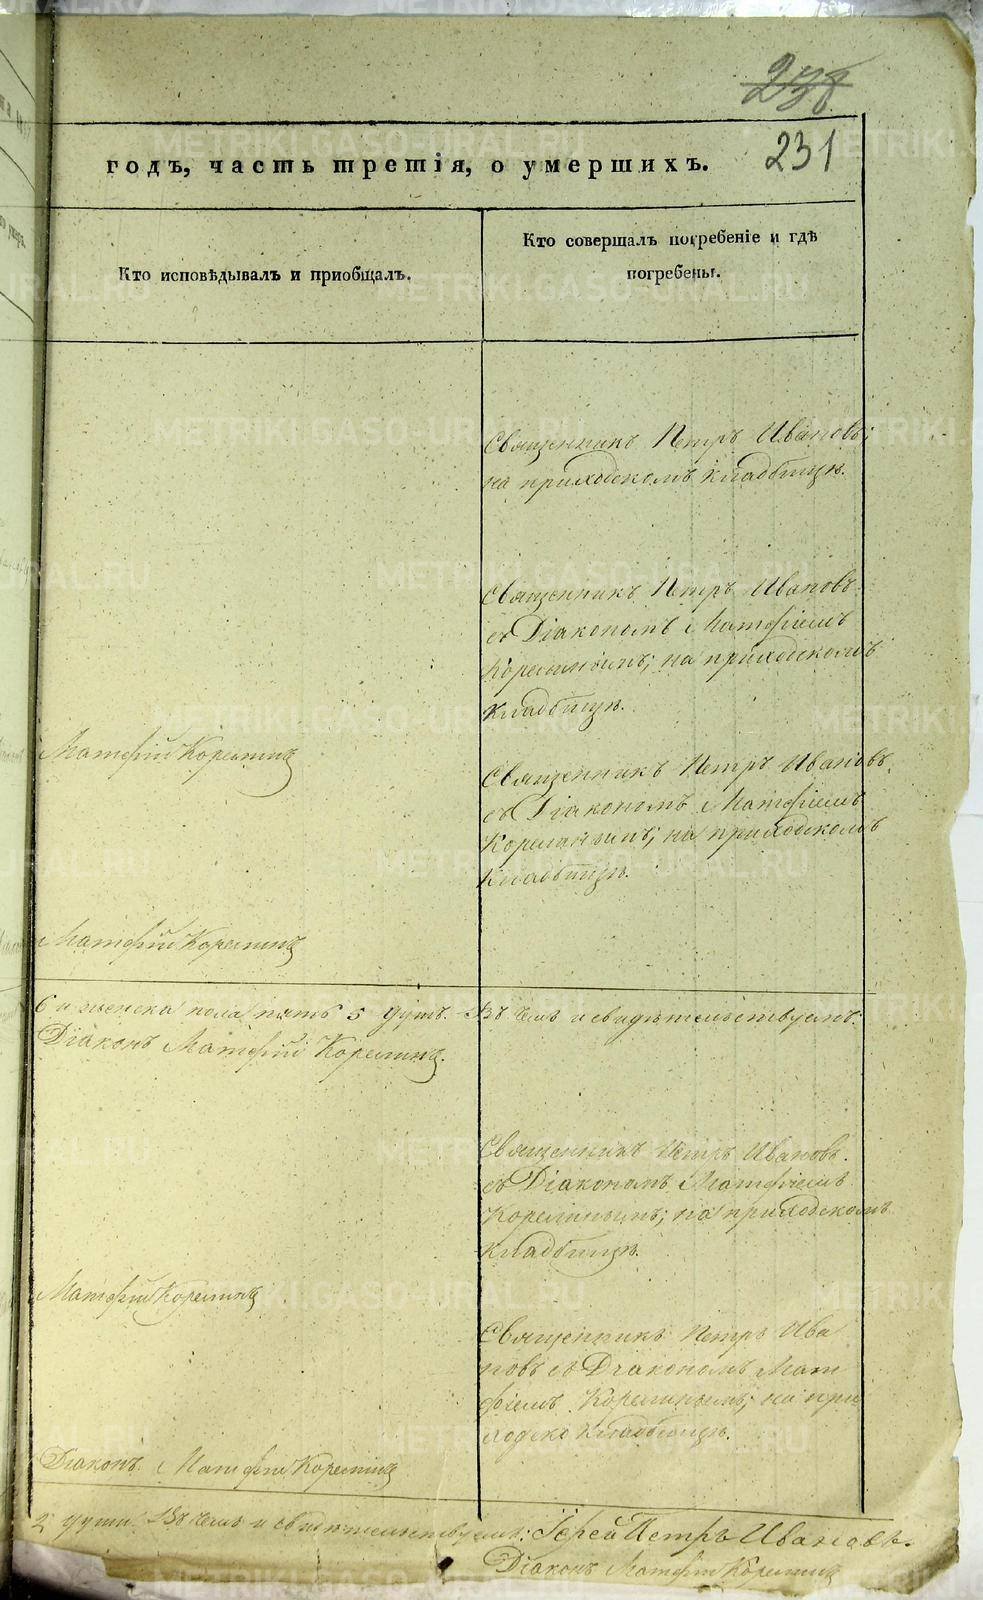 238
231
годъ, часть третія, о умершихъ.
Кто исповѣдывалъ и приобщалъ.
Кто совершалъ погребеніе и гдѣ
погребены.
Священникъ Петръ Ивановъ;
на приходскомъ кладбищѣ.
Священникъ Петръ Ивановъ
съ Діакономъ Матфіемъ
Корелинымъ; на приходскомъ
кладбищѣ.
Матфій Корелинъ
Священникъ Петръ Ивановъ
съ Діакономъ Матфіемъ
Корелинымъ; на приходскомъ
кладбищѣ.
Матфій Корелинъ
6 и женска пола пять 5 душъ. Въ чемъ и свидѣтельствуемъ:
Діаконъ Матфій Корелинъ.
Священникъ Петръ Ивановъ
съ Діакономъ Матфіемъ
Корелинымъ; на приходскомъ
кладбищѣ.
Матфій Корелинъ
Священникъ Петръ Ива
новъ съ Діакономъ Мат
фіемъ Корелинымъ; на при
ходско кладбищѣ.
Діаконъ Матфій Корелинъ
2 души. Въ чемъ и свидѣтельствуемъ: Іерей Петръ Ивановъ.
Діаконъ Матфій Корелинъ
METRIKI.GASO-URAL.RU